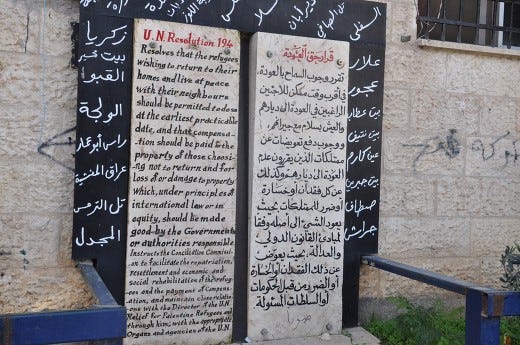 السفلى
زكريا
القبو
الولجة
راس أبو عمار
تل الترمس
المجدل
U.N. Resolution 194
Resolves that the refugees
wishing to return to their
homes and live at peace
with their neighbours
should be permitted to do so
at the earliest practicable
date, and that compensa-
tion should be paid to the
property of those choosi-
ng not to return and for
loss of or damage to property
which, under principles of
international law or in
equity, should be made
good by the Governments
or authorities responsible.
Instructs the Conciliation Commiss-
ion to facilitate the repatriation,
resettlement and economic and
social rehabilitation of the refug-
ees and the payment of Compens-
ation, and maintain close relations
with the Director of the U.N
Relief for Palestine Refugees and
through him, with the appropriate
Organs and agencies of the U.N.
قرار حق العودة
تقرر وجوب السماح بالعودة
في أقرب وقت ممكن للاجئين
الراغبين في العودة الى ديارهم
والعيش بسلام مع جيرانهم،
ووجوب دفع تعويضات عن
ممتلكات الذين يقررون عدم
العودة الى ديارهم وكذلك
عن كل فقدان أو خسارة
أو ضرر للممتلكات بحيث
يعود الشيء الى أصله وفقا
لمبادئ القانون الدولي
والعدالة، بحيث يعوض
عن ذلك الفقدان أو الخسارة
أو الضرر من قبل الحكومات
أو السلطات المسئولة
علار
عجور
بيت عطاب
بيت نتيف
عين كارم
بيت جبرين
جراش